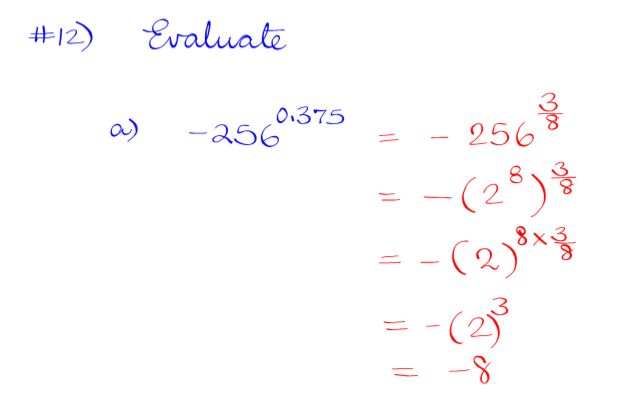 #12) Evaluate
a) -256^0.375 = - 256^3/8
= - (2^8)^3/8
= - (2)^8×3/8
= - (2)^3
= -8